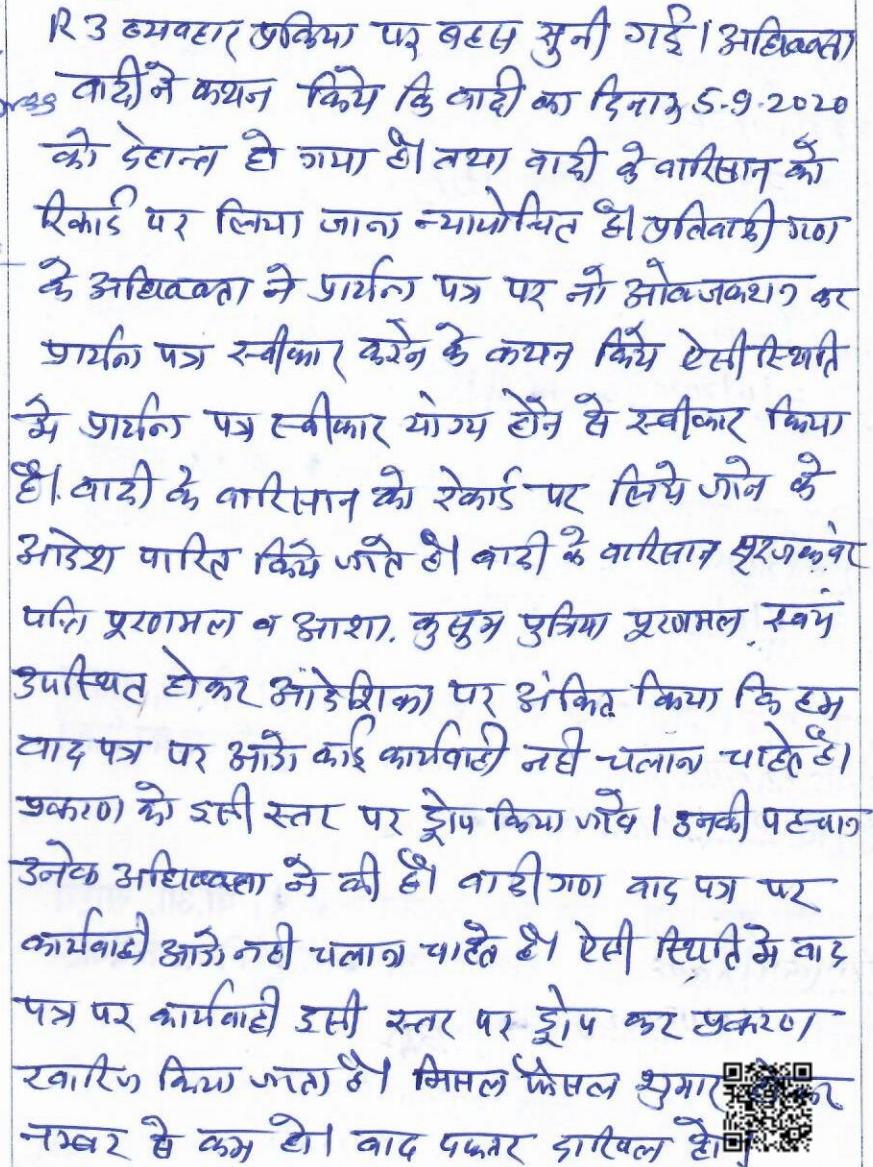 R 3 व्यवहार प्रकिया पर बहस सुनी गई। अधिवक्ता
वादी ने कथन किये कि वादी का दिनांक 5-9-2020
को देहान्त हो गया है। तथा वादी के वारिसान को
रिकार्ड पर लिया जाना न्यायोचित है। प्रतिवादी गण
के अधिवक्ता ने प्रार्थना पत्र पर नो ओब्जक्शन कर
प्रार्थना पत्र स्वीकार करने के कथन किये ऐसी स्थिति
मे प्रार्थना पत्र स्वीकार योग्य होने से स्वीकार किया
है। वादी के वारिसान को रेकार्ड पर लिये जाने के
आदेश पारित किये जाते है। वादी के वारिसान सूरजकंवर
पत्नि पूरणमल व आशा, कुसुम पुत्रिया पूरणमल स्वयं
उपस्थित होकर आदेशिका पर अंकित किया कि हम
वाद पत्र पर आगे कोई कार्यवाही नही चलाना चाहते है।
प्रकरण को इसी स्तर पर ड्रोप किया जावे। उनकी पहचान
उनके अधिवक्ता ने की है। वादी गण वाद पत्र पर
कार्यवाही आगे नही चलाना चाहते है। ऐसी स्थिति मे वाद
पत्र पर कार्यवाही इसी स्तर पर ड्रोप कर प्रकरण
खारिज किया जाता है। मिसल फैसल शुमार होकर
नम्बर से कम हो। वाद दफ्तर दाखिल हो।